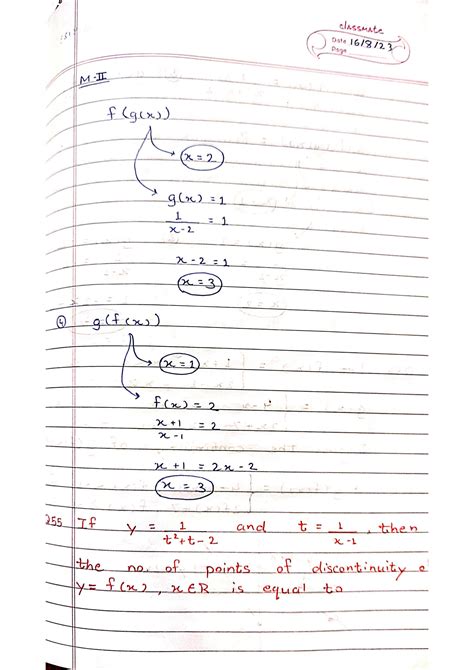 classmate
Date 16/8/23
Page
M-II
f(g(x))
x = 2
g(x) = 1
1/(x-2) = 1
x-2 = 1
x = 3
④ g(f(x))
x = 1
f(x) = 2
(x+1)/(x-1) = 2
x+1 = 2x-2
x = 3
255 If y = 1/(t²+t-2) and t = 1/(x-1), then
the no. of points of discontinuity
y = f(x), x∈R is equal to